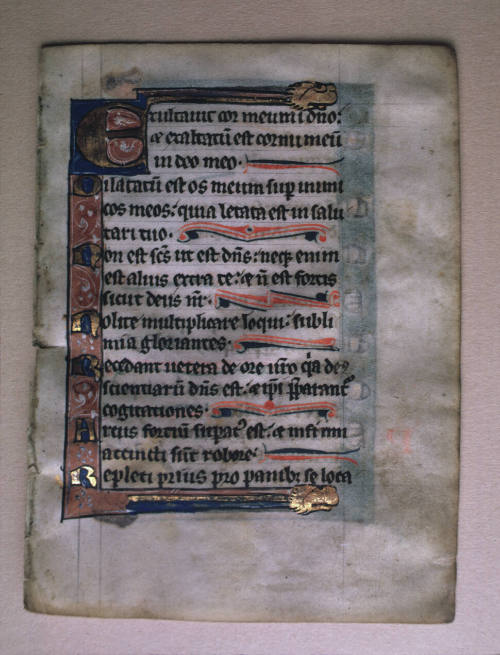 Exultauit cor meum i dno:
⁊ exaltatū est cornu meū
in deo meo.
Dilatatū est os meum sup inimi
cos meos: quia letata est in salu
tari tuo.
Non est scs ut est dns: neq; enim
est alius extra te: ⁊ n̄ est fortis
sicut deus nr̄.
Nolite multiplicare loqui: subli
mia gloriantes.
Recedant uetera de ore uro q̄a deus
scientiarū dns est: ⁊ ip̄i pparant᷑
cogitationes.
Arcus fortiū supat᷑ est: ⁊ infirmi
accincti st̄ robore.
Repleti prius pro panib; se loca